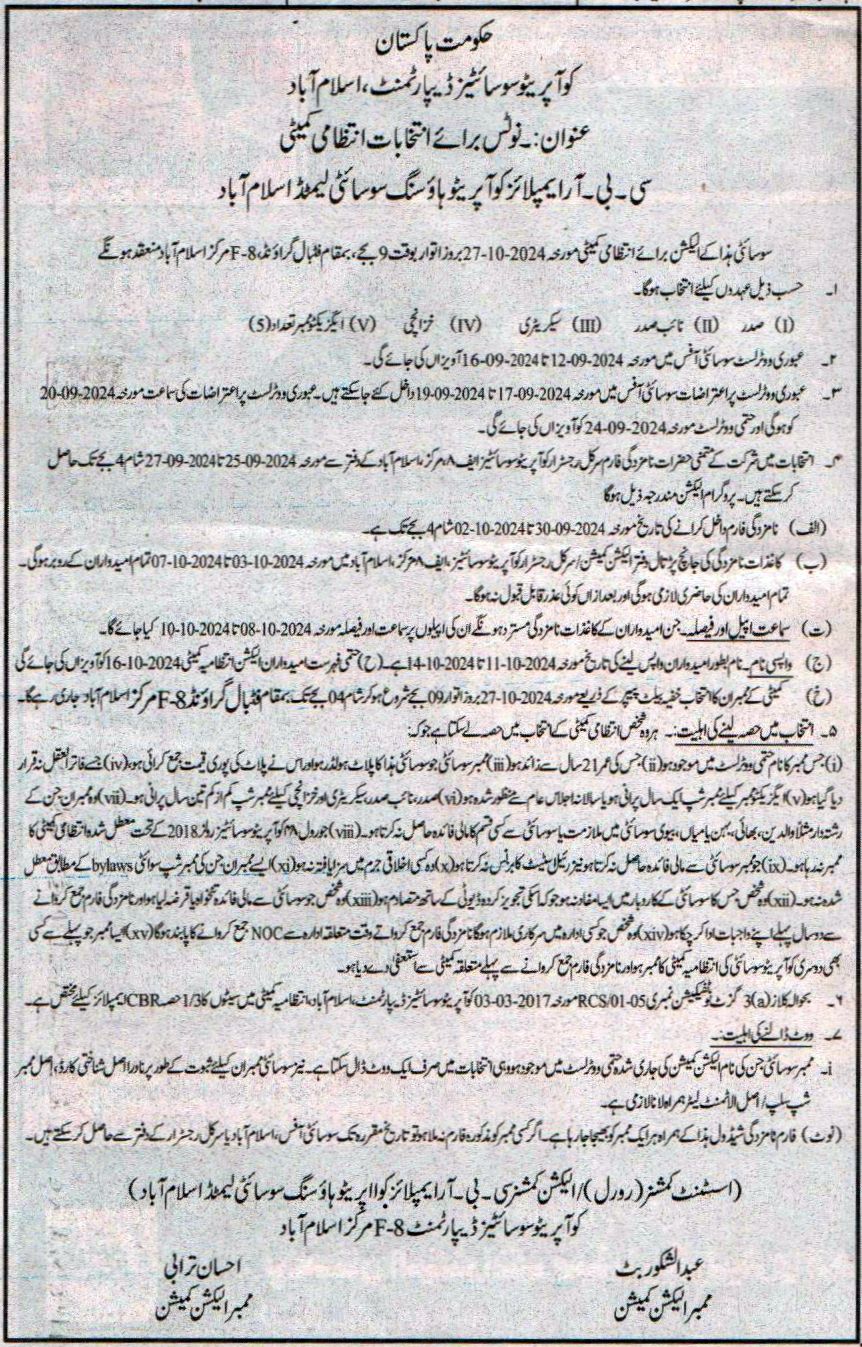 حکومت پاکستان
کوآپریٹو سوسائٹیز ڈیپارٹمنٹ، اسلام آباد
عنوان:۔ نوٹس برائے انتخابات انتظامی کمیٹی
سی۔بی۔آر ایمپلائز کوآپریٹو ہاؤسنگ سوسائٹی لیمٹڈ اسلام آباد
سوسائٹی ہذا کے الیکشن برائے انتظامی کمیٹی مورخہ 27-10-2024 بروز اتوار بوقت 9 بجے، بمقام فٹبال گراؤنڈ، F-8 مرکز اسلام آباد منعقد ہونگے
۱۔ حسب ذیل عہدوں کیلئے انتخاب ہوگا۔
(I) صدر (II) نائب صدر (III) سیکریٹری (IV) خزانچی (V) ایگزیکٹو ممبر تعداد (5)
۲۔ عبوری ووٹر لسٹ سوسائٹی آفس میں مورخہ 12-09-2024 تا 16-09-2024 آویزاں کی جائے گی۔
۳۔ عبوری ووٹر لسٹ پر اعتراضات سوسائٹی آفس میں مورخہ 17-09-2024 تا 19-09-2024 داخل کئے جا سکتے ہیں۔ عبوری ووٹر لسٹ پر اعتراضات کی سماعت مورخہ 20-09-2024
کو ہوگی اور حتمی ووٹر لسٹ مورخہ 24-09-2024 کو آویزاں کی جائے گی۔
۴۔ انتخابات میں شرکت کے متمنی حضرات نامزدگی فارم سرکل رجسٹرار کوآپریٹو سوسائٹیز ایف ۸ مرکز، اسلام آباد کے دفتر سے مورخہ 25-09-2024 تا 27-09-2024 شام 4 بجے تک حاصل
کر سکتے ہیں۔ پروگرام الیکشن مندرجہ ذیل ہوگا
(الف) نامزدگی فارم داخل کرانے کی تاریخ مورخہ 30-09-2024 تا 02-10-2024 شام 4 بجے تک ہے۔
(ب) کاغذات نامزدگی کی جانچ پڑتال دفتر الیکشن کمیشن / سرکل رجسٹرار کوآپریٹو سوسائٹیز، ایف ۸ مرکز، اسلام آباد میں مورخہ 03-10-2024 تا 07-10-2024 تمام امیدواران کے روبرو ہوگی۔
تمام امیدواران کی حاضری لازمی ہوگی اور بعد ازاں کوئی عذر قابل قبول نہ ہوگا۔
(ت) سماعت اپیل اور فیصلہ۔ جن امیدواران کے کاغذات نامزدگی مسترد ہونگے ان کی اپیلوں پر سماعت اور فیصلہ مورخہ 08-10-2024 تا 10-10-2024 کیا جائے گا۔
(ج) واپسی نام۔ نام بطور امیدواران واپس لینے کی تاریخ مورخہ 11-10-2024 تا 14-10-2024 ہے۔ (ح) حتمی فہرست امیدواران الیکشن انتظامیہ کمیٹی 16-10-2024 کو آویزاں کی جائے گی
(خ) کمیٹی کے ممبران کا انتخاب خفیہ بیلٹ پیپر کے ذریعے مورخہ 27-10-2024 بروز اتوار 09 بجے شروع ہو کر شام 04 بجے تک، بمقام فٹبال گراؤنڈ F-8 مرکز اسلام آباد جاری رہے گا۔
۵۔ انتخاب میں حصہ لینے کی اہلیت:۔ ہر وہ شخص انتظامی کمیٹی کے انتخاب میں حصہ لے سکتا ہے جو کہ:
(i) جس ممبر کا نام حتمی ووٹر لسٹ میں موجود ہو (ii) جس کی عمر 21 سال سے زائد ہو (iii) ممبر سوسائٹی جو سوسائٹی ہذا کا پلاٹ ہولڈر ہو اور اس نے پلاٹ کی پوری قیمت جمع کرائی ہو، (iv) جسے فاتر العقل نہ قرار
دیا گیا ہو (v) ایگزیکٹو ممبر کیلئے ممبر شپ ایک سال پرانی ہو یا سالانہ اجلاس عام سے منظور شدہ ہو (vi) صدر، نائب صدر، سیکریٹری اور خزانچی کیلئے ممبر شپ کم از کم تین سال پرانی ہو۔ (vii) وہ ممبران جن کے
رشتہ دار مثلاً والدین، بھائی، بہن یا میاں، بیوی سوسائٹی میں ملازمت یا سوسائٹی سے کسی قسم کا مالی فائدہ حاصل نہ کرتا ہو۔ (viii) جو رول ۴۸ کوآپریٹو سوسائٹیز رولز 2018 کے تحت معطل شدہ انتظامی کمیٹی کا
ممبر نہ رہا ہو۔ (ix) جو ممبر سوسائٹی سے مالی فائدہ حاصل نہ کرتا ہو نیز رئیل اسٹیٹ کا بزنس نہ کرتا ہو (x) وہ کسی اخلاقی جرم میں سزا یافتہ نہ ہو (xi) ایسے ممبران جن کی ممبر شپ سوسائٹی bylaws کے مطابق معطل
شدہ نہ ہو۔ (xii) وہ شخص جس کا سوسائٹی کے کاروبار میں ایسا مفاد نہ ہو جو کہ اسکی تجویز کردہ ڈیوٹی کے ساتھ متصادم ہو (xiii) وہ شخص جو سوسائٹی سے مالی فائدہ تنخواہ یا قرضہ لیا ہو اور نامزدگی فارم جمع کروانے
سے دو سال پہلے اپنے واجبات ادا کر چکا ہو (xiv) وہ شخص جو کسی ادارہ میں سرکاری ملازم ہوگا نامزدگی فارم جمع کرواتے وقت متعلقہ ادارہ سے NOC جمع کروانے کا پابند ہوگا (xv) ایسا ممبر جو پہلے سے کسی
بھی دوسری کوآپریٹو سوسائٹی کی انتظامیہ کمیٹی کا ممبر ہو اور نامزدگی فارم جمع کروانے سے پہلے متعلقہ کمیٹی سے استعفیٰ دے دیا ہو۔
۶۔ بحوالہ کلاز 3(a) گزٹ نوٹیفکیشن نمبری RCS/01-05 مورخہ 03-03-2017 کوآپریٹو سوسائٹیز ڈیپارٹمنٹ، اسلام آباد، انتظامیہ کمیٹی میں سیٹوں کا 1/3 حصہ CBR ایمپلائز کیلئے مختص ہے۔
۷۔ ووٹ ڈالنے کی اہلیت:۔
i۔ ممبر سوسائٹی جن کی نام الیکشن کمیشن کی جاری شدہ حتمی ووٹر لسٹ میں موجود ہو وہی انتخابات میں صرف ایک ووٹ ڈال سکتا ہے۔ نیز سوسائٹی ممبران کیلئے ثبوت کے طور پر نادرا اصل شناختی کارڈ، اصل ممبر
شپ سلپ / اصل الاٹمنٹ لیٹر ہمراہ لانا لازمی ہے۔
(نوٹ) فارم نامزدگی شیڈول ہذا کے ہمراہ ہر ایک ممبر کو بھیجا جا رہا ہے۔ اگر کسی ممبر کو مذکورہ فارم نہ ملا ہو تو تاریخ مقررہ تک سوسائٹی آفس، اسلام آباد یا سرکل رجسٹرار کے دفتر سے حاصل کر سکتے ہیں۔
(اسسٹنٹ کمشنر (رورل) / الیکشن کمشنر سی۔بی۔آر ایمپلائز کواپریٹو ہاؤسنگ سوسائٹی لیمٹڈ اسلام آباد)
کوآپریٹو سوسائٹیز ڈیپارٹمنٹ F-8 مرکز اسلام آباد
عبدالشکور بٹ
ممبر الیکشن کمیشن
احسان ترابی
ممبر الیکشن کمیشن